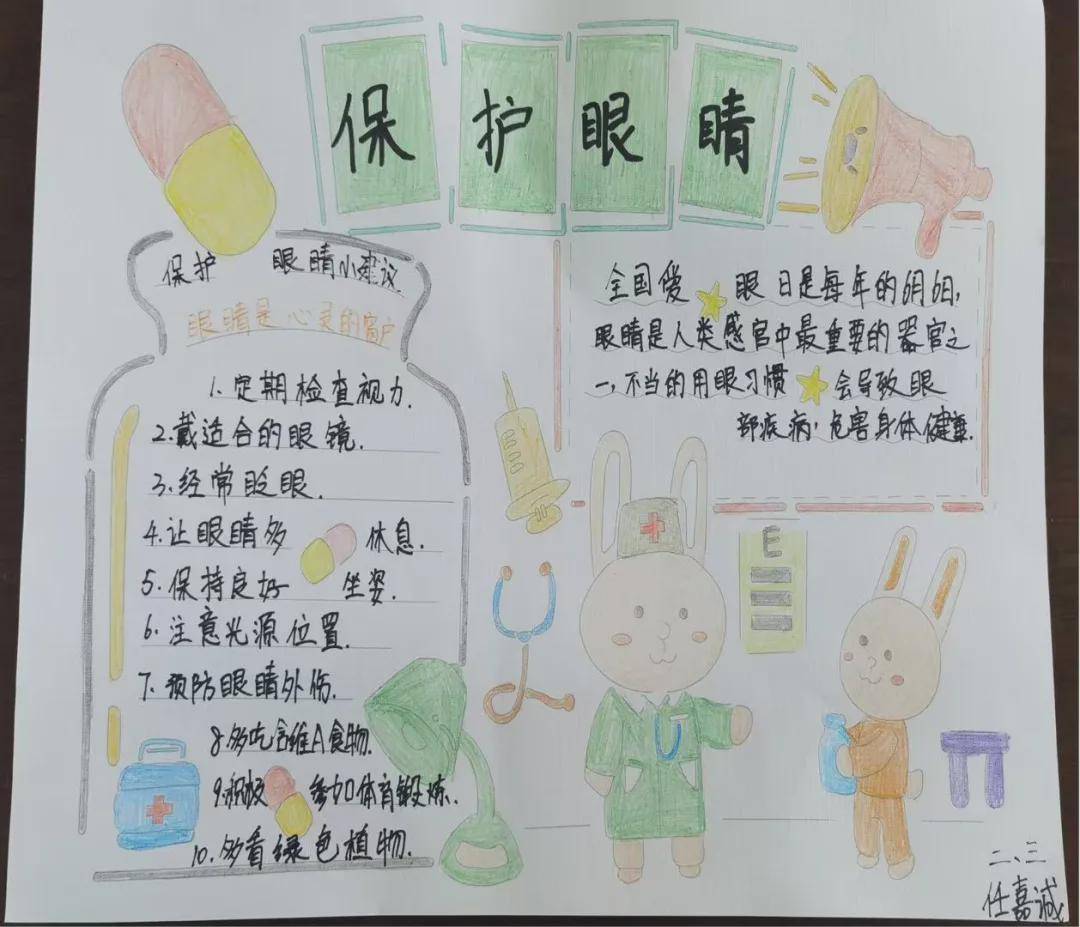 保护眼睛
保护 眼睛小建议
眼睛是心灵的窗户
1.定期检查视力.
2.戴适合的眼镜.
3.经常眨眼.
4.让眼睛多 休息.
5.保持良好 坐姿.
6.注意光源位置.
7.预防眼睛外伤.
8.多吃含维A食物.
9.积极 参加体育锻炼.
10.多看绿色植物.
全国爱 眼日是每年的6月6日,
眼睛是人类感官中最重要的器官之
一,不当的用眼习惯 会导致眼
部疾病,危害身体健康.
E
二、三
任嘉诚